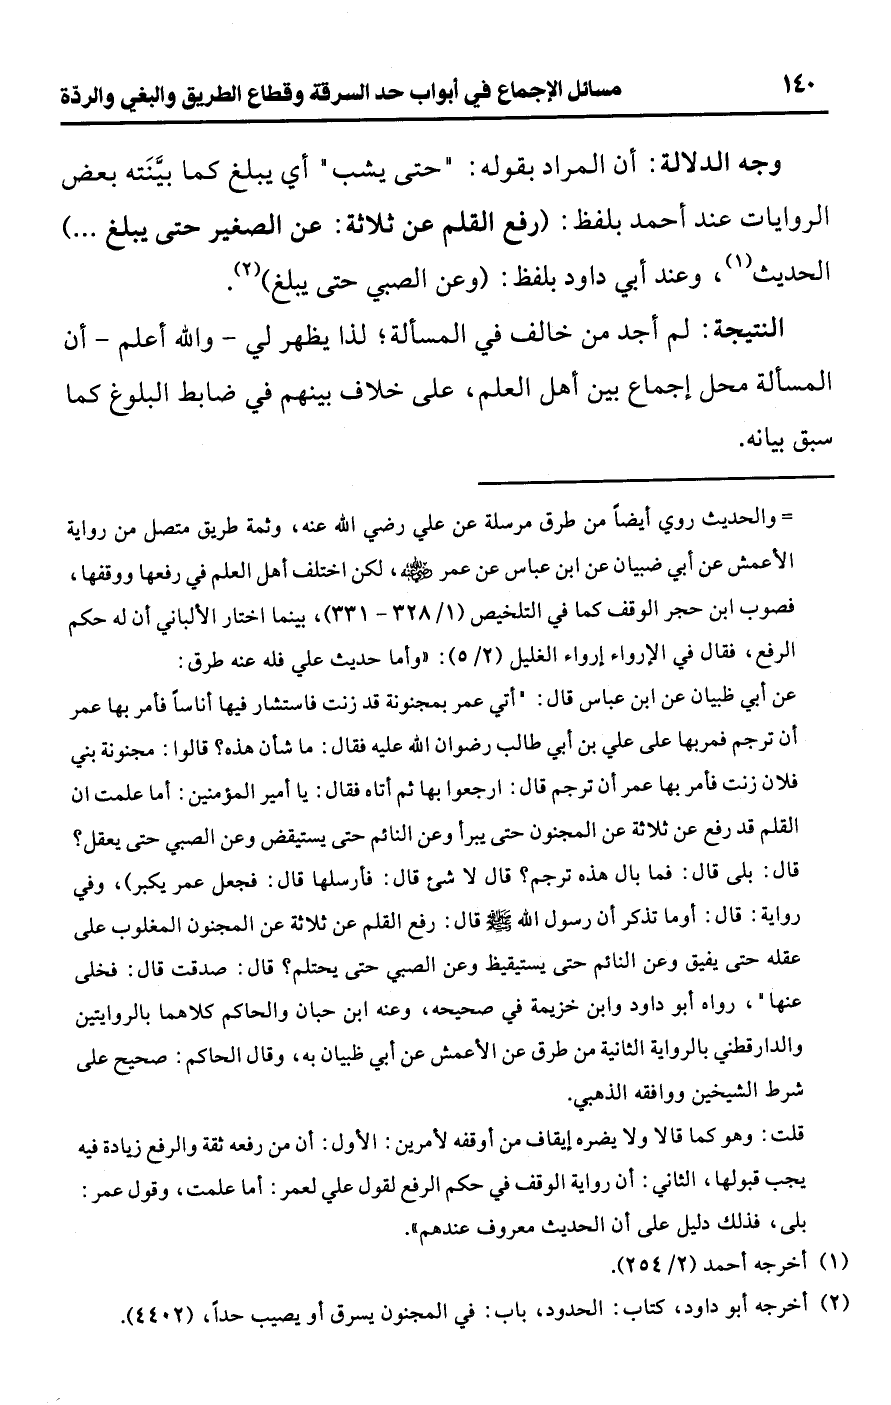 ١٤٠ مسائل الإجماع في أبواب حد السرقة وقطاع الطريق والبغي والردّة
وجه الدلالة: أن المراد بقوله: "حتى يشب" أي يبلغ كما بيَّنَته بعض
الروايات عند أحمد بلفظ: (رفع القلم عن ثلاثة: عن الصغير حتى يبلغ ...)
الحديث(١)، وعند أبي داود بلفظ: (وعن الصبي حتى يبلغ)(٢).
النتيجة: لم أجد من خالف في المسألة؛ لذا يظهر لي - والله أعلم - أن
المسألة محل إجماع بين أهل العلم، على خلاف بينهم في ضابط البلوغ كما
سبق بيانه.
= والحديث روي أيضاً من طرق مرسلة عن علي رضي الله عنه، وثمة طريق متصل من رواية
الأعمش عن أبي ضبيان عن ابن عباس عن عمر ﷺ، لكن اختلف أهل العلم في رفعها ووقفها،
فصوب ابن حجر الوقف كما في التلخيص (١/ ٣٢٨ - ٣٣١)، بينما اختار الألباني أن له حكم
الرفع، فقال في الإرواء إرواء الغليل (٢/ ٥): «وأما حديث علي فله عنه طرق:
عن أبي ظبيان عن ابن عباس قال: "أتي عمر بمجنونة قد زنت فاستشار فيها أناساً فأمر بها عمر
أن ترجم فمربها على علي بن أبي طالب رضوان الله عليه فقال: ما شأن هذه؟ قالوا: مجنونة بني
فلان زنت فأمر بها عمر أن ترجم قال: ارجعوا بها ثم أتاه فقال: يا أمير المؤمنين: أما علمت ان
القلم قد رفع عن ثلاثة عن المجنون حتى يبرأ وعن النائم حتى يستيقض وعن الصبي حتى يعقل؟
قال: بلى قال: فما بال هذه ترجم؟ قال لا شئ قال: فأرسلها قال: فجعل عمر يكبر)، وفي
رواية: قال: أوما تذكر أن رسول الله ﷺ قال: رفع القلم عن ثلاثة عن المجنون المغلوب على
عقله حتى يفيق وعن النائم حتى يستيقيظ وعن الصبي حتى يحتلم؟ قال: صدقت قال: فخلى
عنها"، رواه أبو داود وابن خزيمة في صحيحه، وعنه ابن حبان والحاكم كلاهما بالروايتين
والدارقطني بالرواية الثانية من طرق عن الأعمش عن أبي ظبيان به، وقال الحاكم: صحيح على
شرط الشيخين ووافقه الذهبي.
قلت: وهو كما قالا ولا يضره إيقاف من أوقفه لأمرين: الأول: أن من رفعه ثقة والرفع زيادة فيه
يجب قبولها، الثاني: أن رواية الوقف في حكم الرفع لقول علي لعمر: أما علمت، وقول عمر:
بلى، فذلك دليل على أن الحديث معروف عندهم».
(١) أخرجه أحمد (٢/ ٢٥٤).
(٢) أخرجه أبو داود، كتاب: الحدود، باب: في المجنون يسرق أو يصيب حداً، (٤٤٠٢).